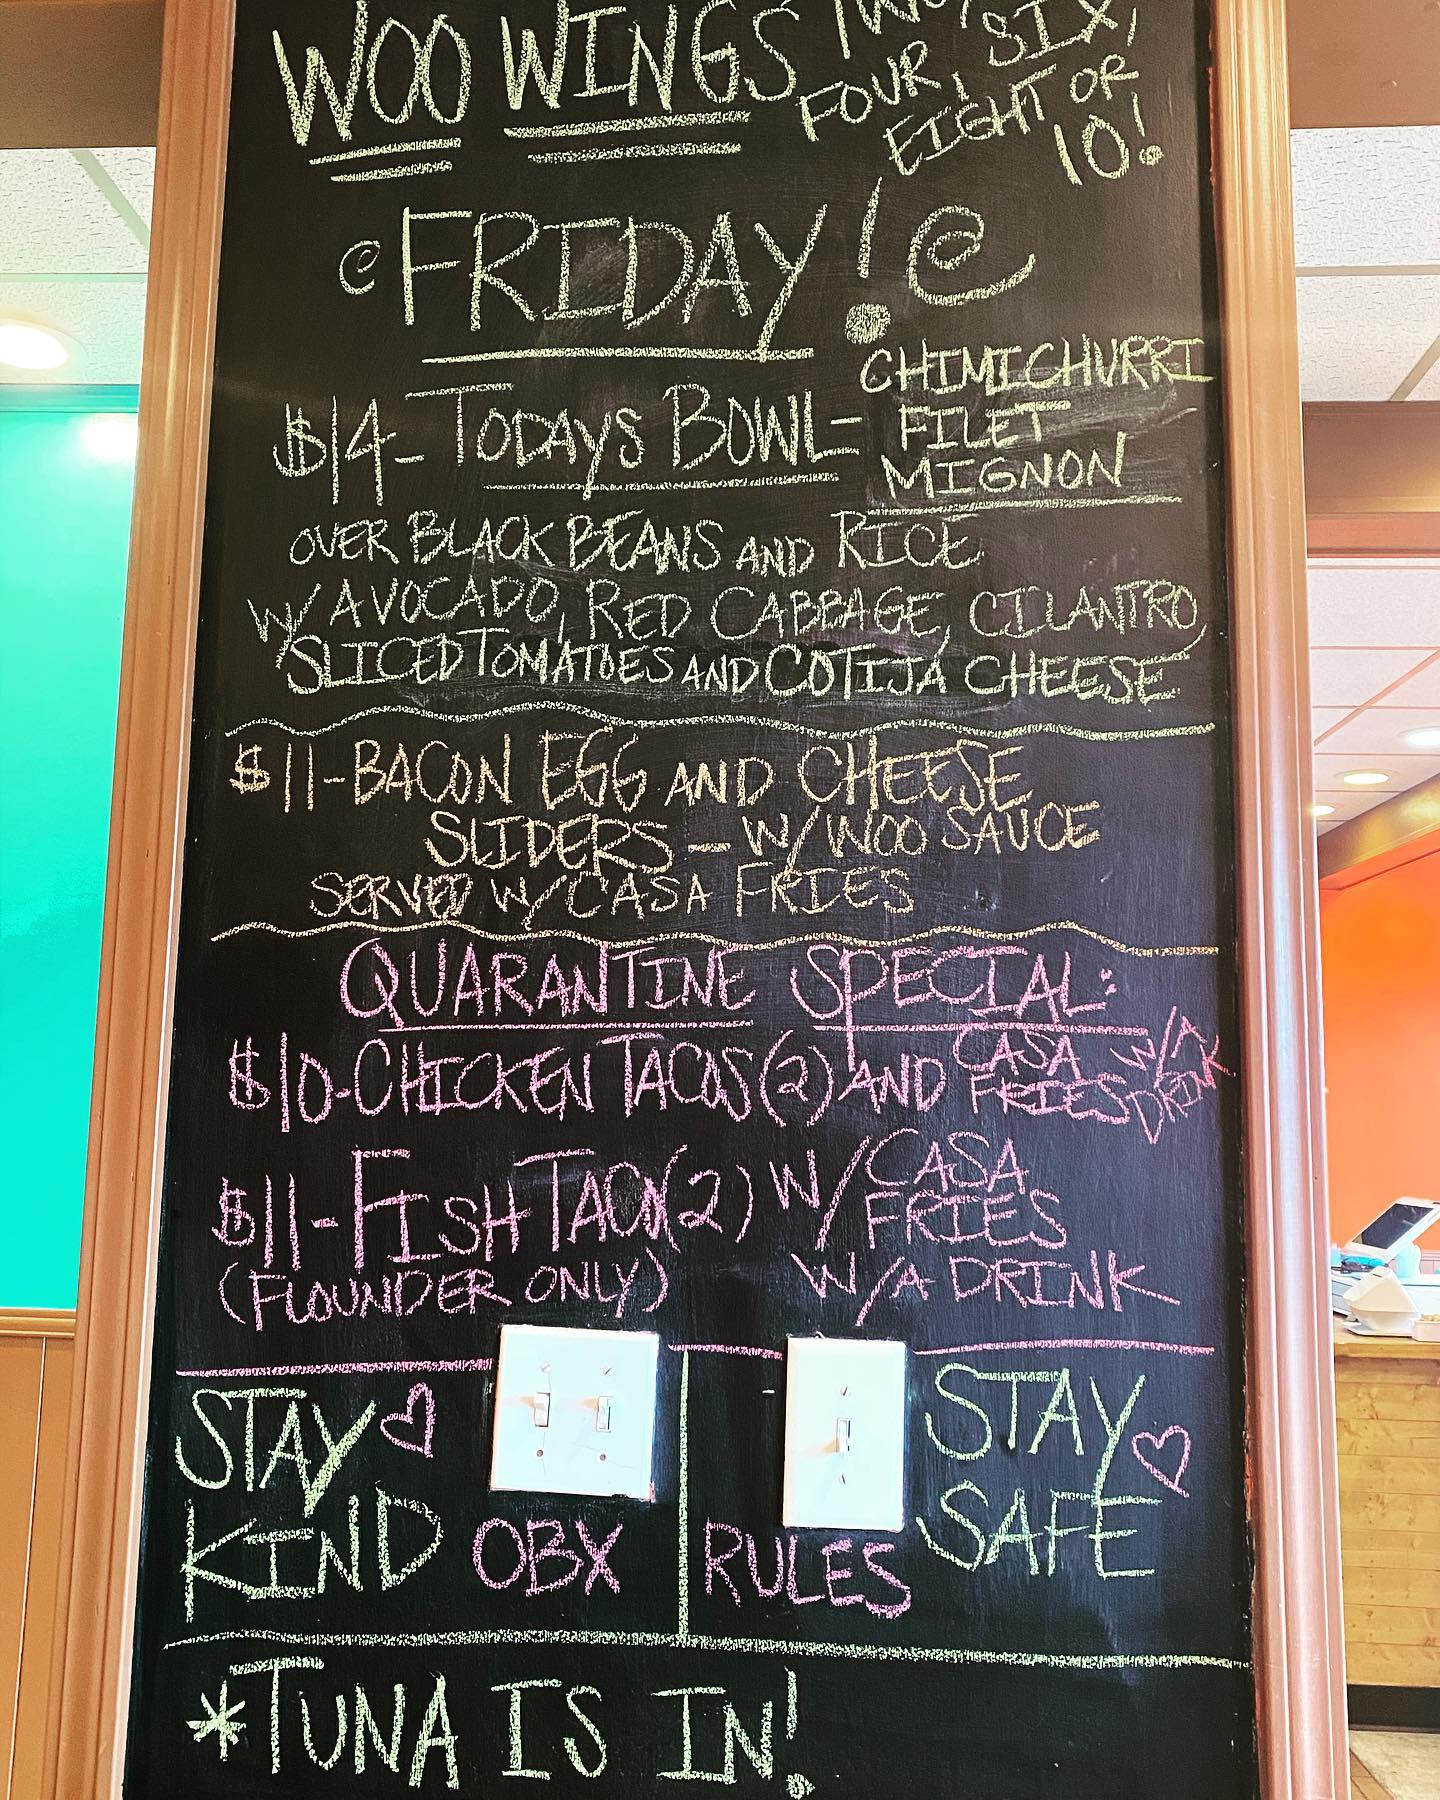 WOO WINGS TWO,
FOUR, SIX,
EIGHT OR
10!
FRIDAY!
$14- TODAYS BOWL- CHIMICHURRI
FILET
MIGNON
OVER BLACK BEANS AND RICE
W/ AVOCADO, RED CABBAGE, CILANTRO,
SLICED TOMATOES AND COTIJA CHEESE
$11- BACON EGG AND CHEESE
SLIDERS - W/ WOO SAUCE
SERVED W/ CASA FRIES
QUARANTINE SPECIAL:
$10- CHICKEN TACOS (2) AND CASA FRIES W/A DRINK
$11- FISH TACO (2) W/ CASA FRIES
(FLOUNDER ONLY) W/A DRINK
STAY
KIND
OBX
RULES
STAY
SAFE
*TUNA IS IN!